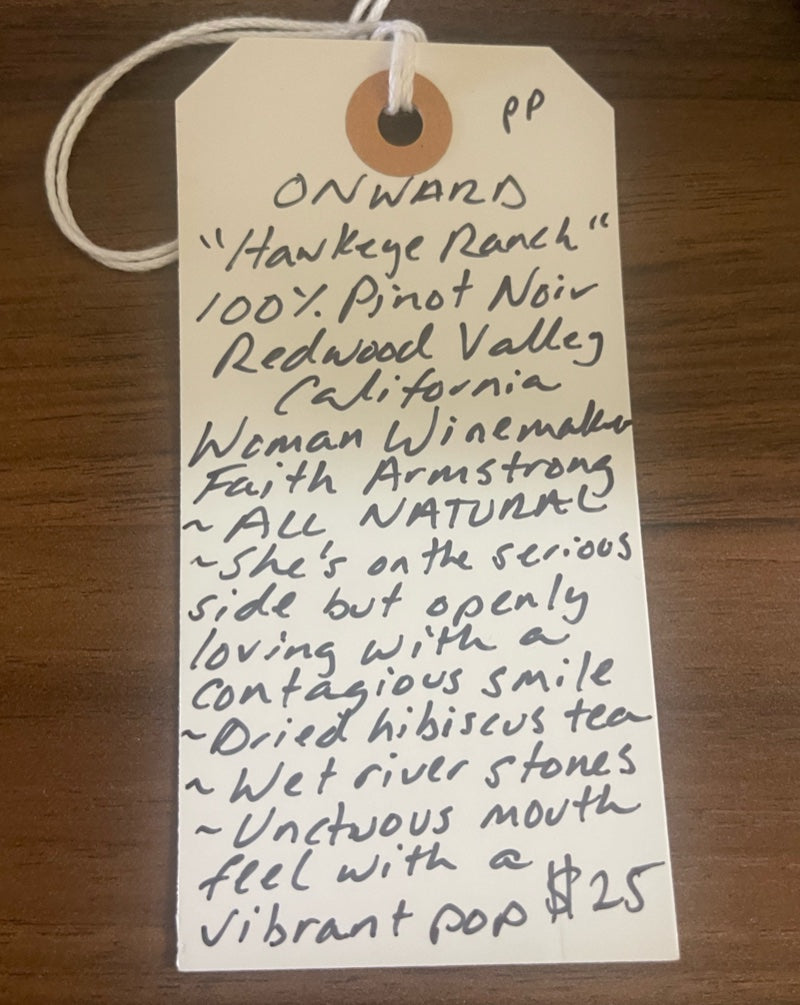 PP
ONWARD
"Hawkeye Ranch"
100% Pinot Noir
Redwood Valley
California
Woman Winemaker
Faith Armstrong
~ ALL NATURAL
~She's on the serious
side but openly
loving with a
contagious smile
~Dried hibiscus tea
~ Wet river stones
~Unctuous mouth
feel with a
vibrant pop $25